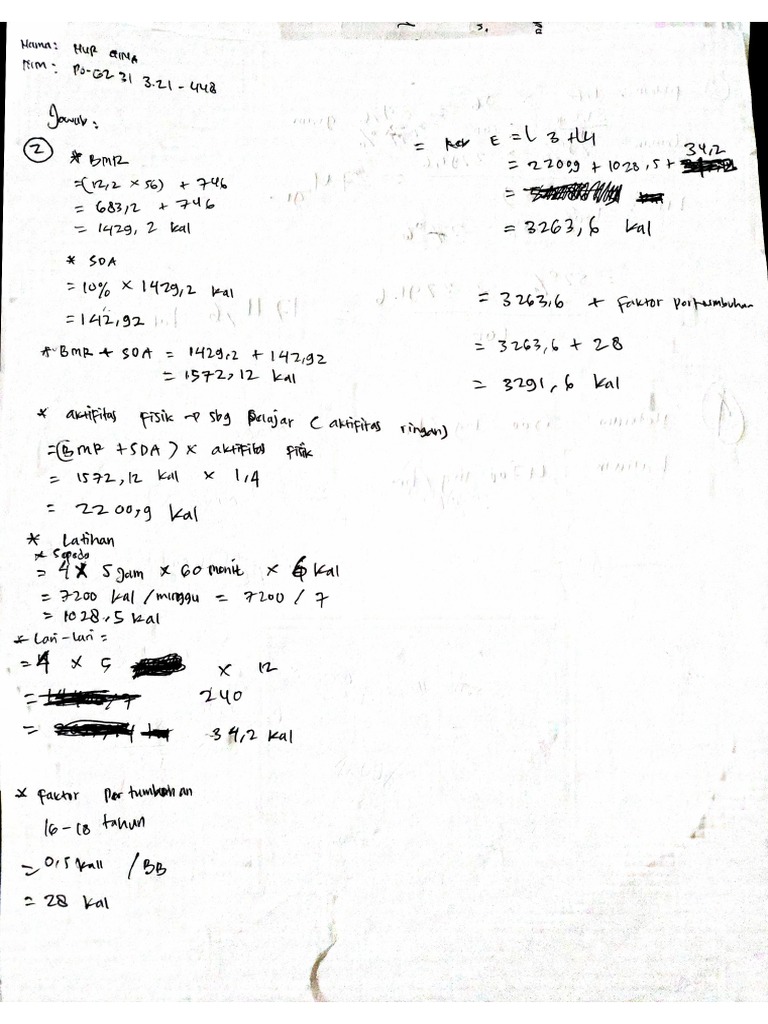 Nama: NUR GINA
Nim: PO.62 31 3.21-448
Jawab:
②
* BMR
=(12,2 × 56) + 746
= 683,2 + 746
= 1429,2 kal
* SDA
= 10% × 1429,2 kal
= 142,92
* BMR + SDA = 1429,2 + 142,92
= 1572,12 kal
* aktifitas fisik → sbg pelajar (aktifitas ringan)
=(BMR + SDA) × aktifitas fisik
= 1572,12 kal × 1,4
= 2200,9 kal
* Latihan
* Sepeda
= 4 × 5 jam × 60 menit × 6 kal
= 7200 kal/minggu = 7200 / 7
= 1028,5 kal
* Lari-lari =
= 4 × 5 × 12
= 240
= 34,2 kal
* faktor pertumbuhan
16-18 tahun
= 0,5 kall /BB
= 28 kal
= E = 3 + 4
= 2200,9 + 1028,5 + 34,2
=
= 3263,6 kal
= 3263,6 + faktor pertumbuhan
= 3263,6 + 28
= 3291,6 kal